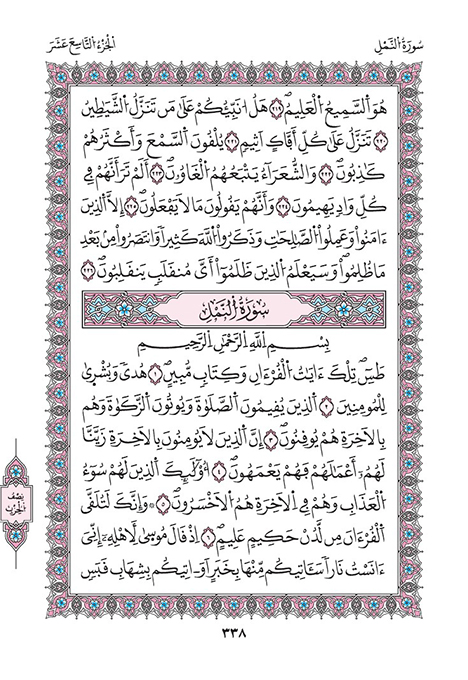 سُورَةُ النَّمْلِ
الْجُزْءُ التَّاسِعَ عَشَرَ
هُوَ اَ۬لسَّمِيعُ اُ۬لْعَلِيمُ ٢١٩ هَلُ ا۟نَبِّئُكُمْ عَلَىٰ مَن تَنَزَّلُ اُ۬لشَّيَٰطِينُ
٢٢٠ تَنَزَّلُ عَلَىٰ كُلِّ أَفَّاكٍ اَثِيمٖ ٢٢١ يُلْقُونَ اَ۬لسَّمْعَ وَأَكْثَرُهُمْ
كَٰذِبُونَ ٢٢٢ وَالشُّعَرَآءُ يَتْبَعُهُمُ اُ۬لْغَاوُۥنَ ٢٢٣ أَلَمْ تَرَ أَنَّهُمْ فِے
كُلِّ وَادٖ يَهِيمُونَ ٢٢٤ وَأَنَّهُمْ يَقُولُونَ مَا لَا يَفْعَلُونَ ٢٢٥ إِلَّا اَ۬لذِينَ
ءَامَنُواْ وَعَمِلُواْ اُ۬لصَّٰلِحَٰتِ وَذَكَرُواْ اُ۬للَّهَ كَثِيراٗ وَانتَصَرُواْ مِنۢ بَعْدِ
مَا ظُلِمُواْ وَسَيَعْلَمُ اُ۬لذِينَ ظَلَمُوٓاْ أَيَّ مُنقَلَبٖ يَنقَلِبُونَ ٢٢٦
سُورَةُ النَّمْلِ
بِسْمِ اِ۬للَّهِ اِ۬لرَّحْمَٰنِ اِ۬لرَّحِيمِ
طَسِٓ تِلْكَ ءَايَٰتُ اُ۬لْقُرْءَانِ وَكِتَابٖ مُّبِينٍ ١ هُدىٗ وَبُشْر۪ىٰ
لِلْمُومِنِينَ ٢ اَ۬لذِينَ يُقِيمُونَ اَ۬لصَّلَوٰةَ وَيُوتُونَ اَ۬لزَّكَوٰةَ وَهُم
بِالَاخِرَةِ هُمْ يُوقِنُونَ ٣ إِنَّ اَ۬لذِينَ لَا يُومِنُونَ بِالَاخِرَةِ زَيَّنَّا
لَهُمُۥٓ أَعْمَٰلَهُمْ فَهُمْ يَعْمَهُونَ ٤ أُوْلَٰٓئِكَ اَ۬لذِينَ لَهُمْ سُوٓءُ
اُ۬لْعَذَابِ وَهُمْ فِے اِ۬لَاخِرَةِ هُمُ اُ۬لَاخْسَرُونَ ٥ وَإِنَّكَ لَتُلَقَّى
اَ۬لْقُرْءَانَ مِن لَّدُنْ حَكِيمٍ عَلِيمٍ ٦ اِذْ قَالَ مُوسَىٰ لِأَهْلِهِۦٓ إِنِّيَ
ءَانَسْتُ نَاراٗ سَـَٔاتِيكُم مِّنْهَا بِخَبَرٍ اَوَ اٰتِيكُم بِشِهَابِ قَبَسٖ
نِصْفُ
الْحِزْبِ
٣٣٨